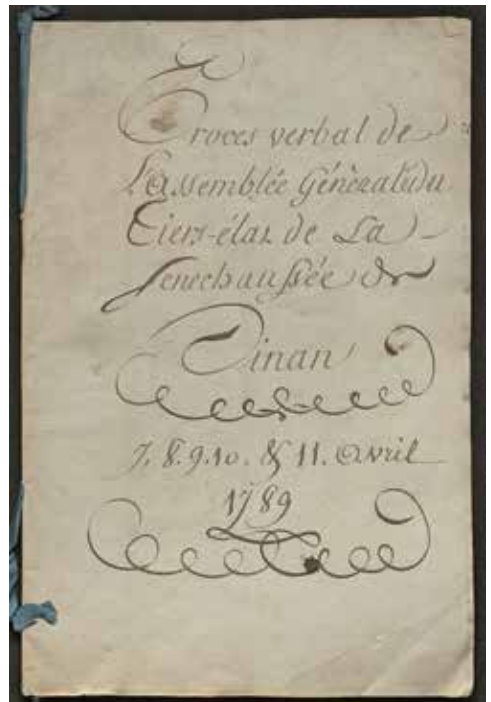 Procès verbal de
L'assemblée Générale du
Tiers-état de La
Senechaussée de
Dinan
7. 8. 9. 10. & 11. avril
1789